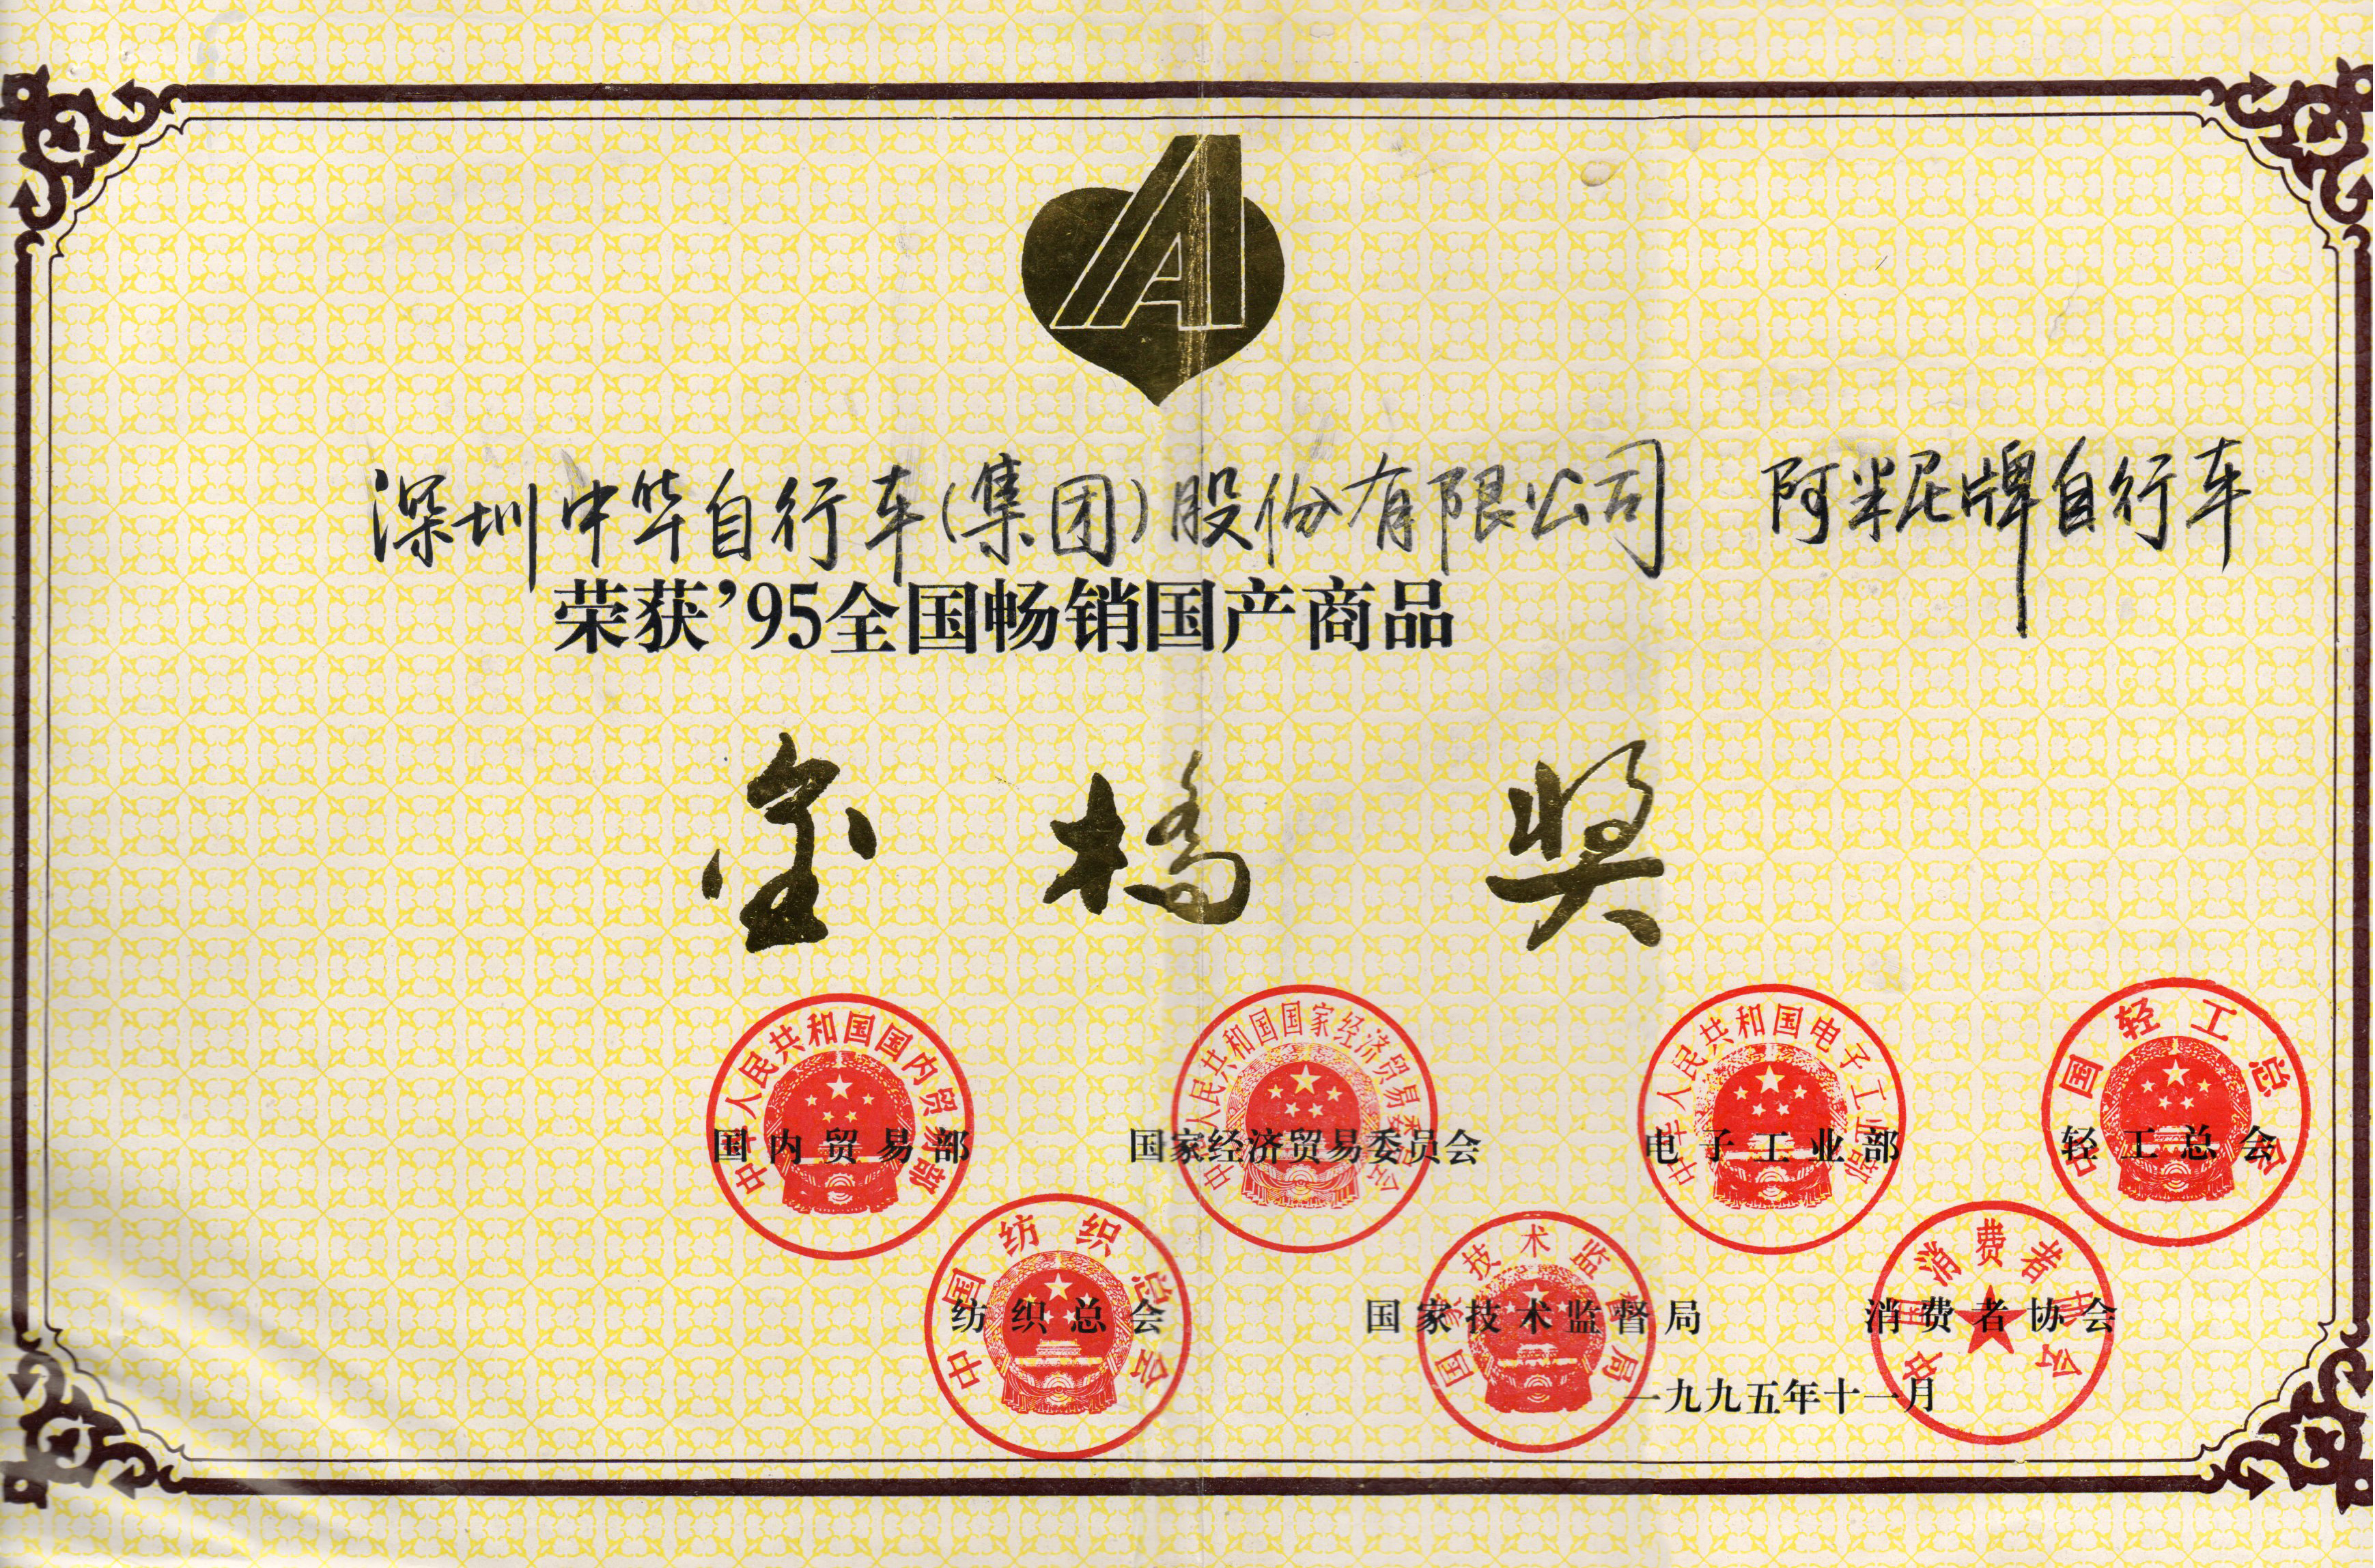 A
深圳中华自行车(集团)股份有限公司 阿米尼牌自行车
荣获’95全国畅销国产商品
金橋奖
中华人民共和国国内贸易部
国内贸易部
中华人民共和国国家经济贸易委员会
国家经济贸易委员会
中华人民共和国电子工业部
电子工业部
中国轻工总会
轻工总会
中国纺织总会
纺织总会
国家技术监督局
国家技术监督局
中国消费者协会
消费者协会
一九九五年十一月